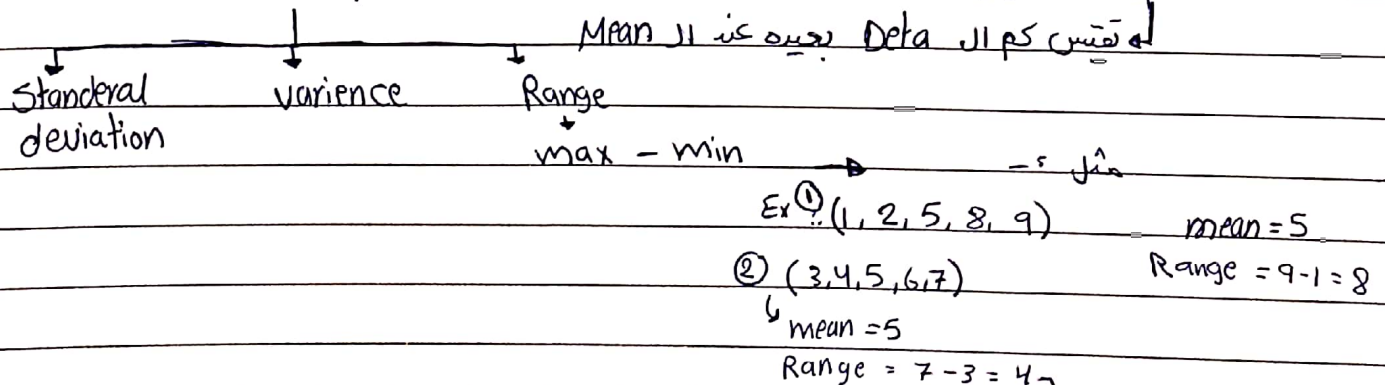 تقيس كم ال Data بعيده عن ال Mean
Standeral deviation
varience
Range
max - min
مثل :-
Ex ① (1, 2, 5, 8, 9) mean = 5
Range = 9-1 = 8
② (3,4,5,6,7)
mean = 5
Range = 7 - 3 = 4